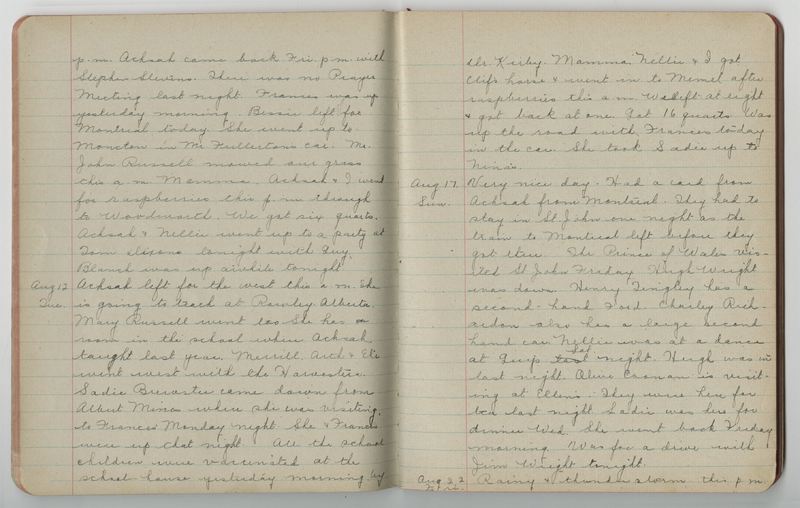 p.m. Achsah came back Fri. p.m. with
Stephen Stevens. There was no Prayer
Meeting last night. Frances was up
yesterday morning. Bessie left for
Montreal today. She went up to
Moncton in Mr Fullertons car. Mr.
John Russell mowed our grass
this a.m. Mamma, Achsah & I went
for raspberries this p.m. through
to Woodworth. We got six quarts.
Achsah & Nellie went up to a party at
Tom tonight with Guy.
Blanch was up awhile tonight
Aug 12 Achsah left for the west this a.m. She
Tue. is going to teach at Alberta.
Mary Russell went too She has a
room in the school where Achsah
taught last year. Merrill, Arch &
went west with the Harvesters.
Sadie Brewster came down from
Albert Mines where she was visiting,
to Frances Monday night. She & Frances
were up that night. All the school
children were vaccinated at the
school house yesterday morning by
Dr. Kirby. Mamma, Nellie & I got
Clifs horse & went in to Memel after
raspberries this a.m. We left at eight
& got back at one. Got 16 quarts. Was
up the road with Frances to-day
in the car. She took Sadie up to
Nina's.
Aug 17. Very nice day. Had a card from
Sun. Achsah from Montreal. They had to
stay in St John one night as the
train to Montreal left before they
got there. The Prince of Wales vis-
ited St John Friday. Hugh Wright
was down. Henry Tingley has a
second-hand Ford. Charley Rich-
ardson also has a large second
hand car. Nellie was at a dance
at Sat night. Hugh was in
last night. Alice is visit-
ing at Ellens. They were here for
tea last night Sadie was here for
dinner Wed. She went back Friday
morning. Was for a drive with
Jim Wright tonight.
Aug 22 Rainy & thunder storm this p.m.
Fri.